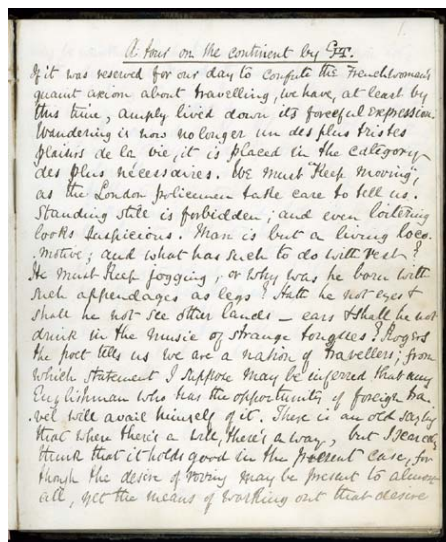 A tour on the continent by G.T.
If it was reserved for our day to confute the Frenchwoman's
quaint axiom about travelling, we have, at least by
this time, amply lived down its forceful expression.
Wandering is now no longer un des plus tristes
plaisirs de la vie, it is placed in the category
des plus nécessaires. We must "Keep moving",
as the London policemen take care to tell us.
Standing still is forbidden; and even loitering
looks suspicious. Man is but a living loco-
-motive; and what has such to do with rest?
He must keep jogging, or why was he born with
such appendages as legs? Hath he not eyes &
shall he not see other lands — ears & shall he not
drink in the music of strange tongues? Rogers
the poet tells us we are a nation of travellers; from
which statement I suppose may be inferred that any
Englishman who has the opportunity of foreign tra-
-vel will avail himself of it. There is an old saying
that where there's a will, there's a way, but I scarcely
think that it holds good in the present case, for
though the desire of roving may be present to almost
all, yet the means of working out that desire